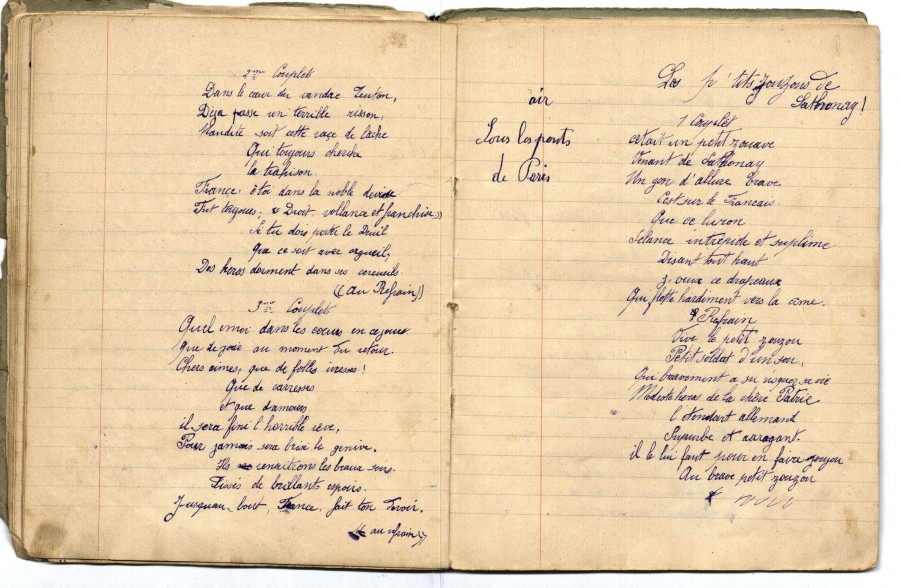 2me Couplet
Dans le cœur du vandae Teuton,
Déja passe un terrible frisson,
Maudite soit cette race de lâche
Qui toujours cherche
la trahison.
France! à toi dans la noble devise
Fut toujours; « Droit, vaillance et franchise »
Si tu dois porter le Deuil
Que ce soit avec orgueil,
Des héros dorment dans ses cercueils.
((au Refrain))
3me Couplet
Quel émoi dans les cœurs en ce jour
que de joie au moment du retour.
Chers aimés, que de folles ivresses!
Que de carresses
et que d'amour
il sera fini l'horrible rêve,
Pour jamais sera brisé le
Ils renaîtrons les beaux jours.
Tissés de brillants espoirs.
Jusquau bout, France, fait ton devoir.
au refrain))
Les p'tits Zouzous de
Sathonay!
air
Sous les ponts
de Paris
1 Couplet
cetait un petit zouave
Venant de Sathonay
Un gon d'allure brave
C'est sur le Francais.
Que ce luron
S'élance intrépide et suplime
Disant tout haut
ce drapeaux
Qui flotte hardiment vers la cime.
Refrain
Vive le petit zouzou
Petit soldat d'un sou,
Qui bravement a su risquer sa vie
Modeste héros de la chère Patrie
l'étendart allemand
Superbe et arragant.
il le lui faut pour en faire joujou
Au brave petit zouzou